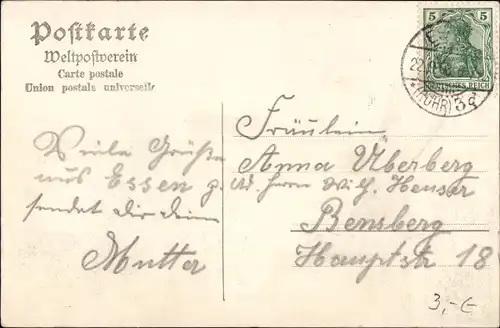 Postkarte
Weltpostverein
Carte postale
Union postale universelle
5 5
DEUTSCHES REICH
22
(RUHR) 3d
Viele Grüße
aus Essen
sendet Dir Deine
Mutter
Fräulein
Anna Überberg
Adr. Herrn Wilh. Heuser
Bensberg
Hauptstr 18
3,-€